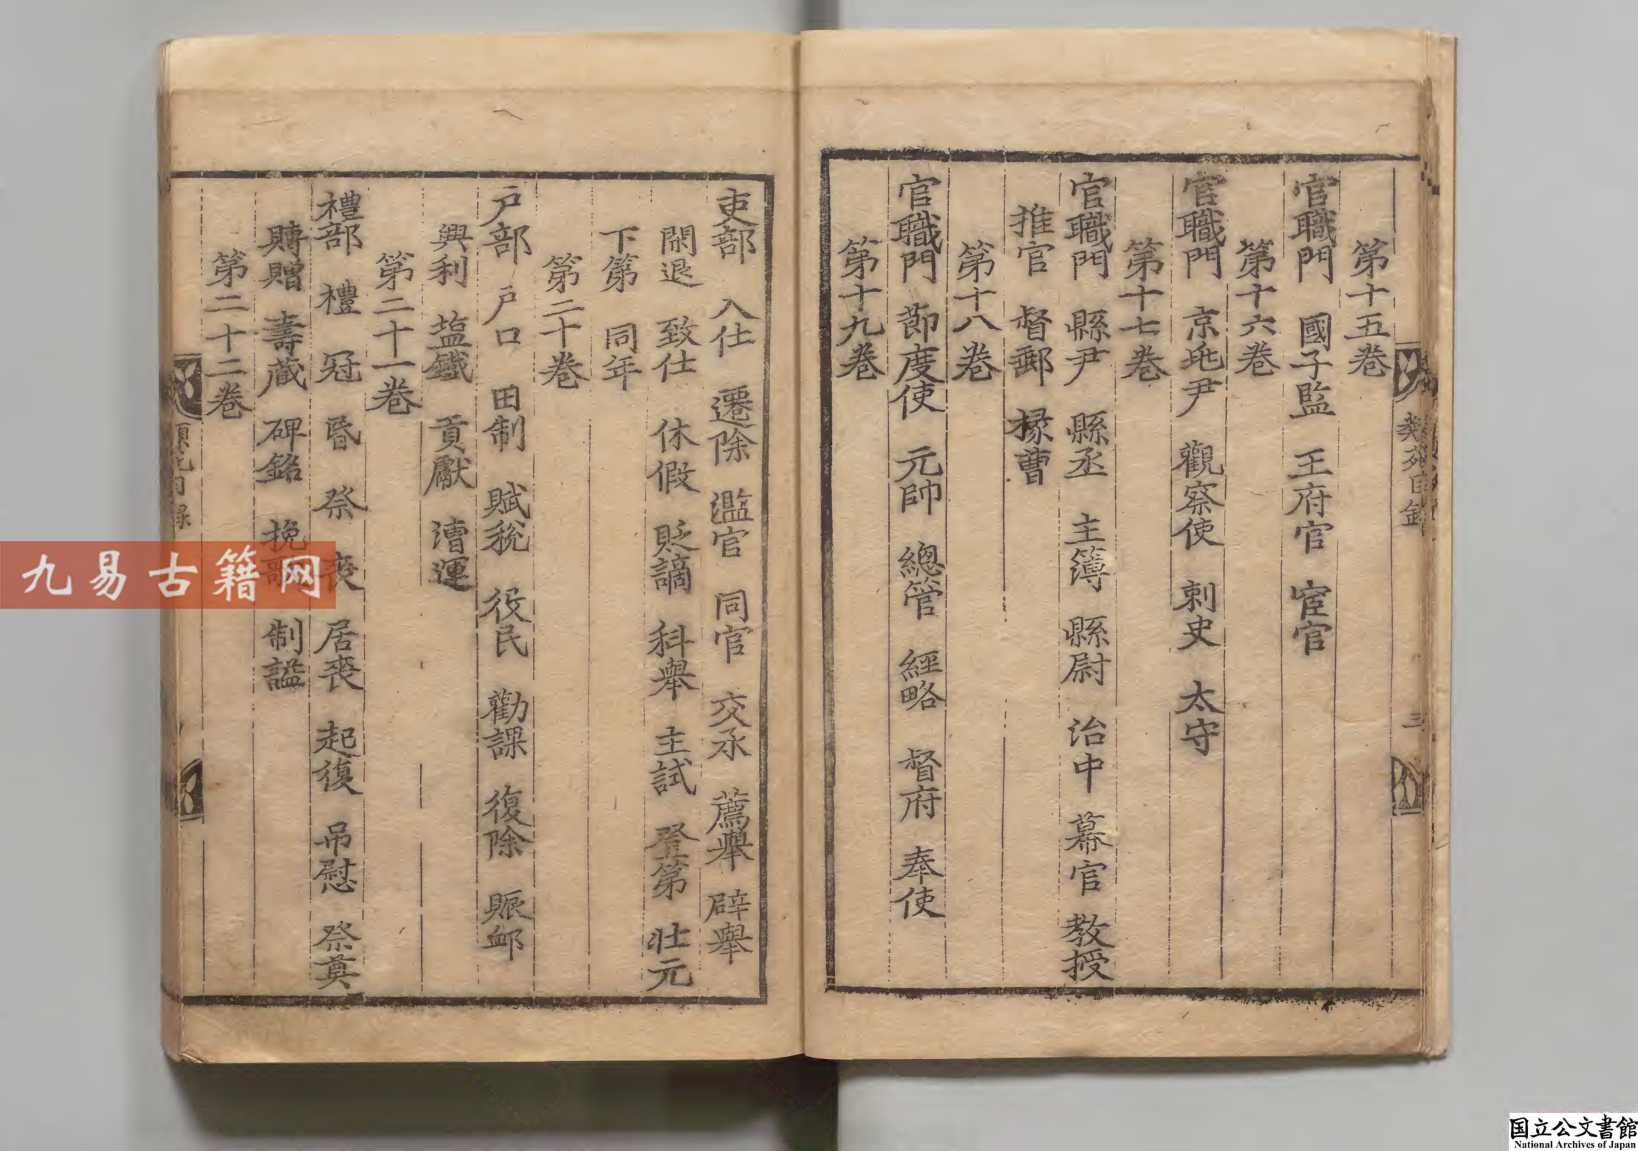 第十五卷
官職門 國子監 王府官 宦官
第十六卷
官職門 京兆尹 觀察使 刺史 太守
第十七卷
官職門 縣尹 縣丞 主簿 縣尉 治中 幕官 教授
推官 督郵 掾曹
第十八卷
官職門 節度使 元帥 總管 經略 督府 奉使
第十九卷
吏部 入仕 遷除 濫官 同官 交承 薦舉 辟舉
閑退 致仕 休假 貶謫 科舉 主試 登第 壯元
下第 同年
第二十卷
戶部 戶口 田制 賦稅 役民 勸課 復除 賑卹
興利 塩鐵 貢獻 漕運
第二十一卷
禮部 禮 冠 昏 祭 喪 居喪 起復 吊慰 祭奠
賻贈 壽藏 碑銘 挽歌 制謚
第二十二卷
目錄
三
九易古籍网
国立公文書館
National Archives of Japan